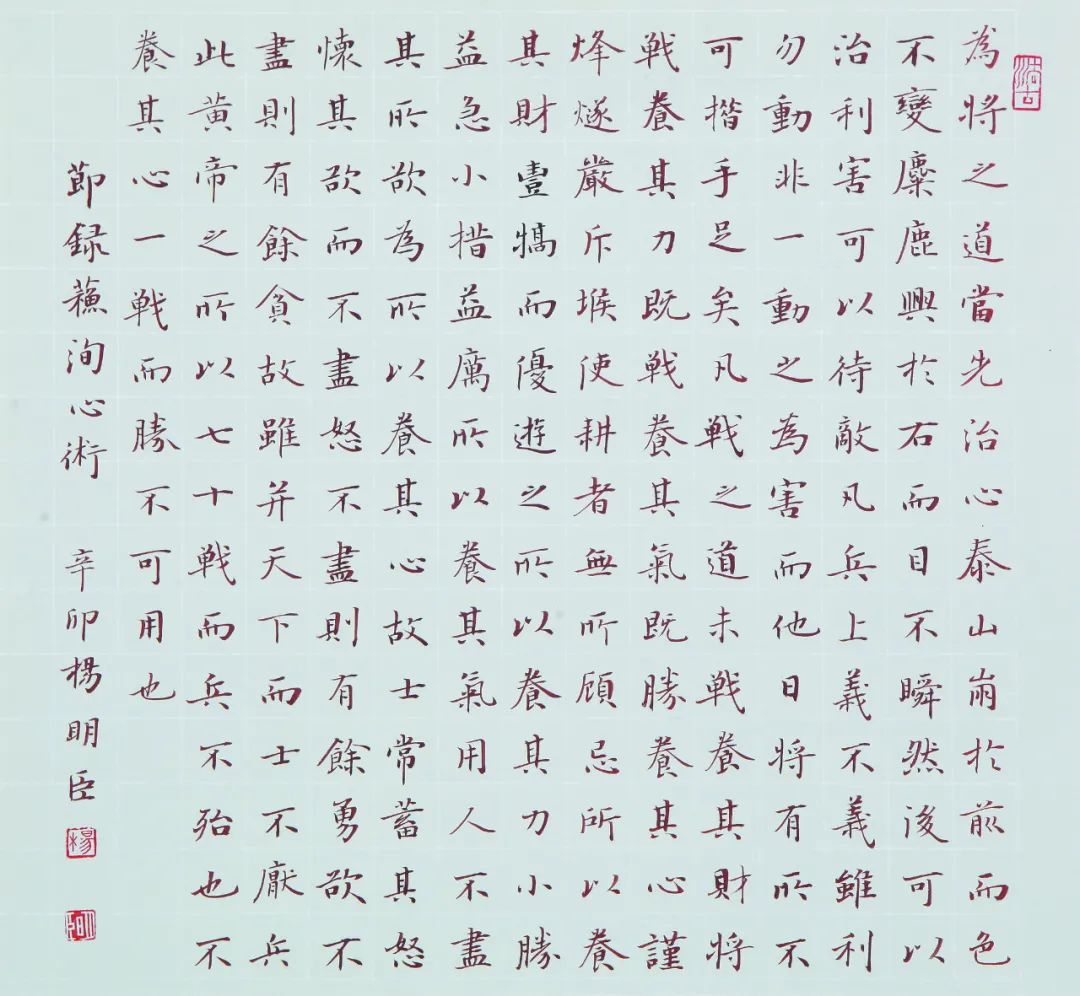 為將之道當先治心泰山崩於前而色
不變麋鹿興於右而目不瞬然後可以
治利害可以待敵凡兵上義不義雖利
勿動非一動之為害而他日將有所不
可措手足矣凡戰之道未戰養其財將
戰養其力既戰養其氣既勝養其心謹
烽燧嚴斥堠使耕者無所顧忌所以養
其財豐犒而優遊之所以養其力小勝
益急小措益厲所以養其氣用人不盡
其所欲為所以養其心故士常蓄其怒
懷其欲而不盡怒不盡則有餘勇欲不
盡則有餘貪故雖并天下而士不厭兵
此黃帝之所以七十戰而兵不殆也不
養其心一戰而勝不可用也
節錄蘇洵心術 辛卯楊明臣
楊